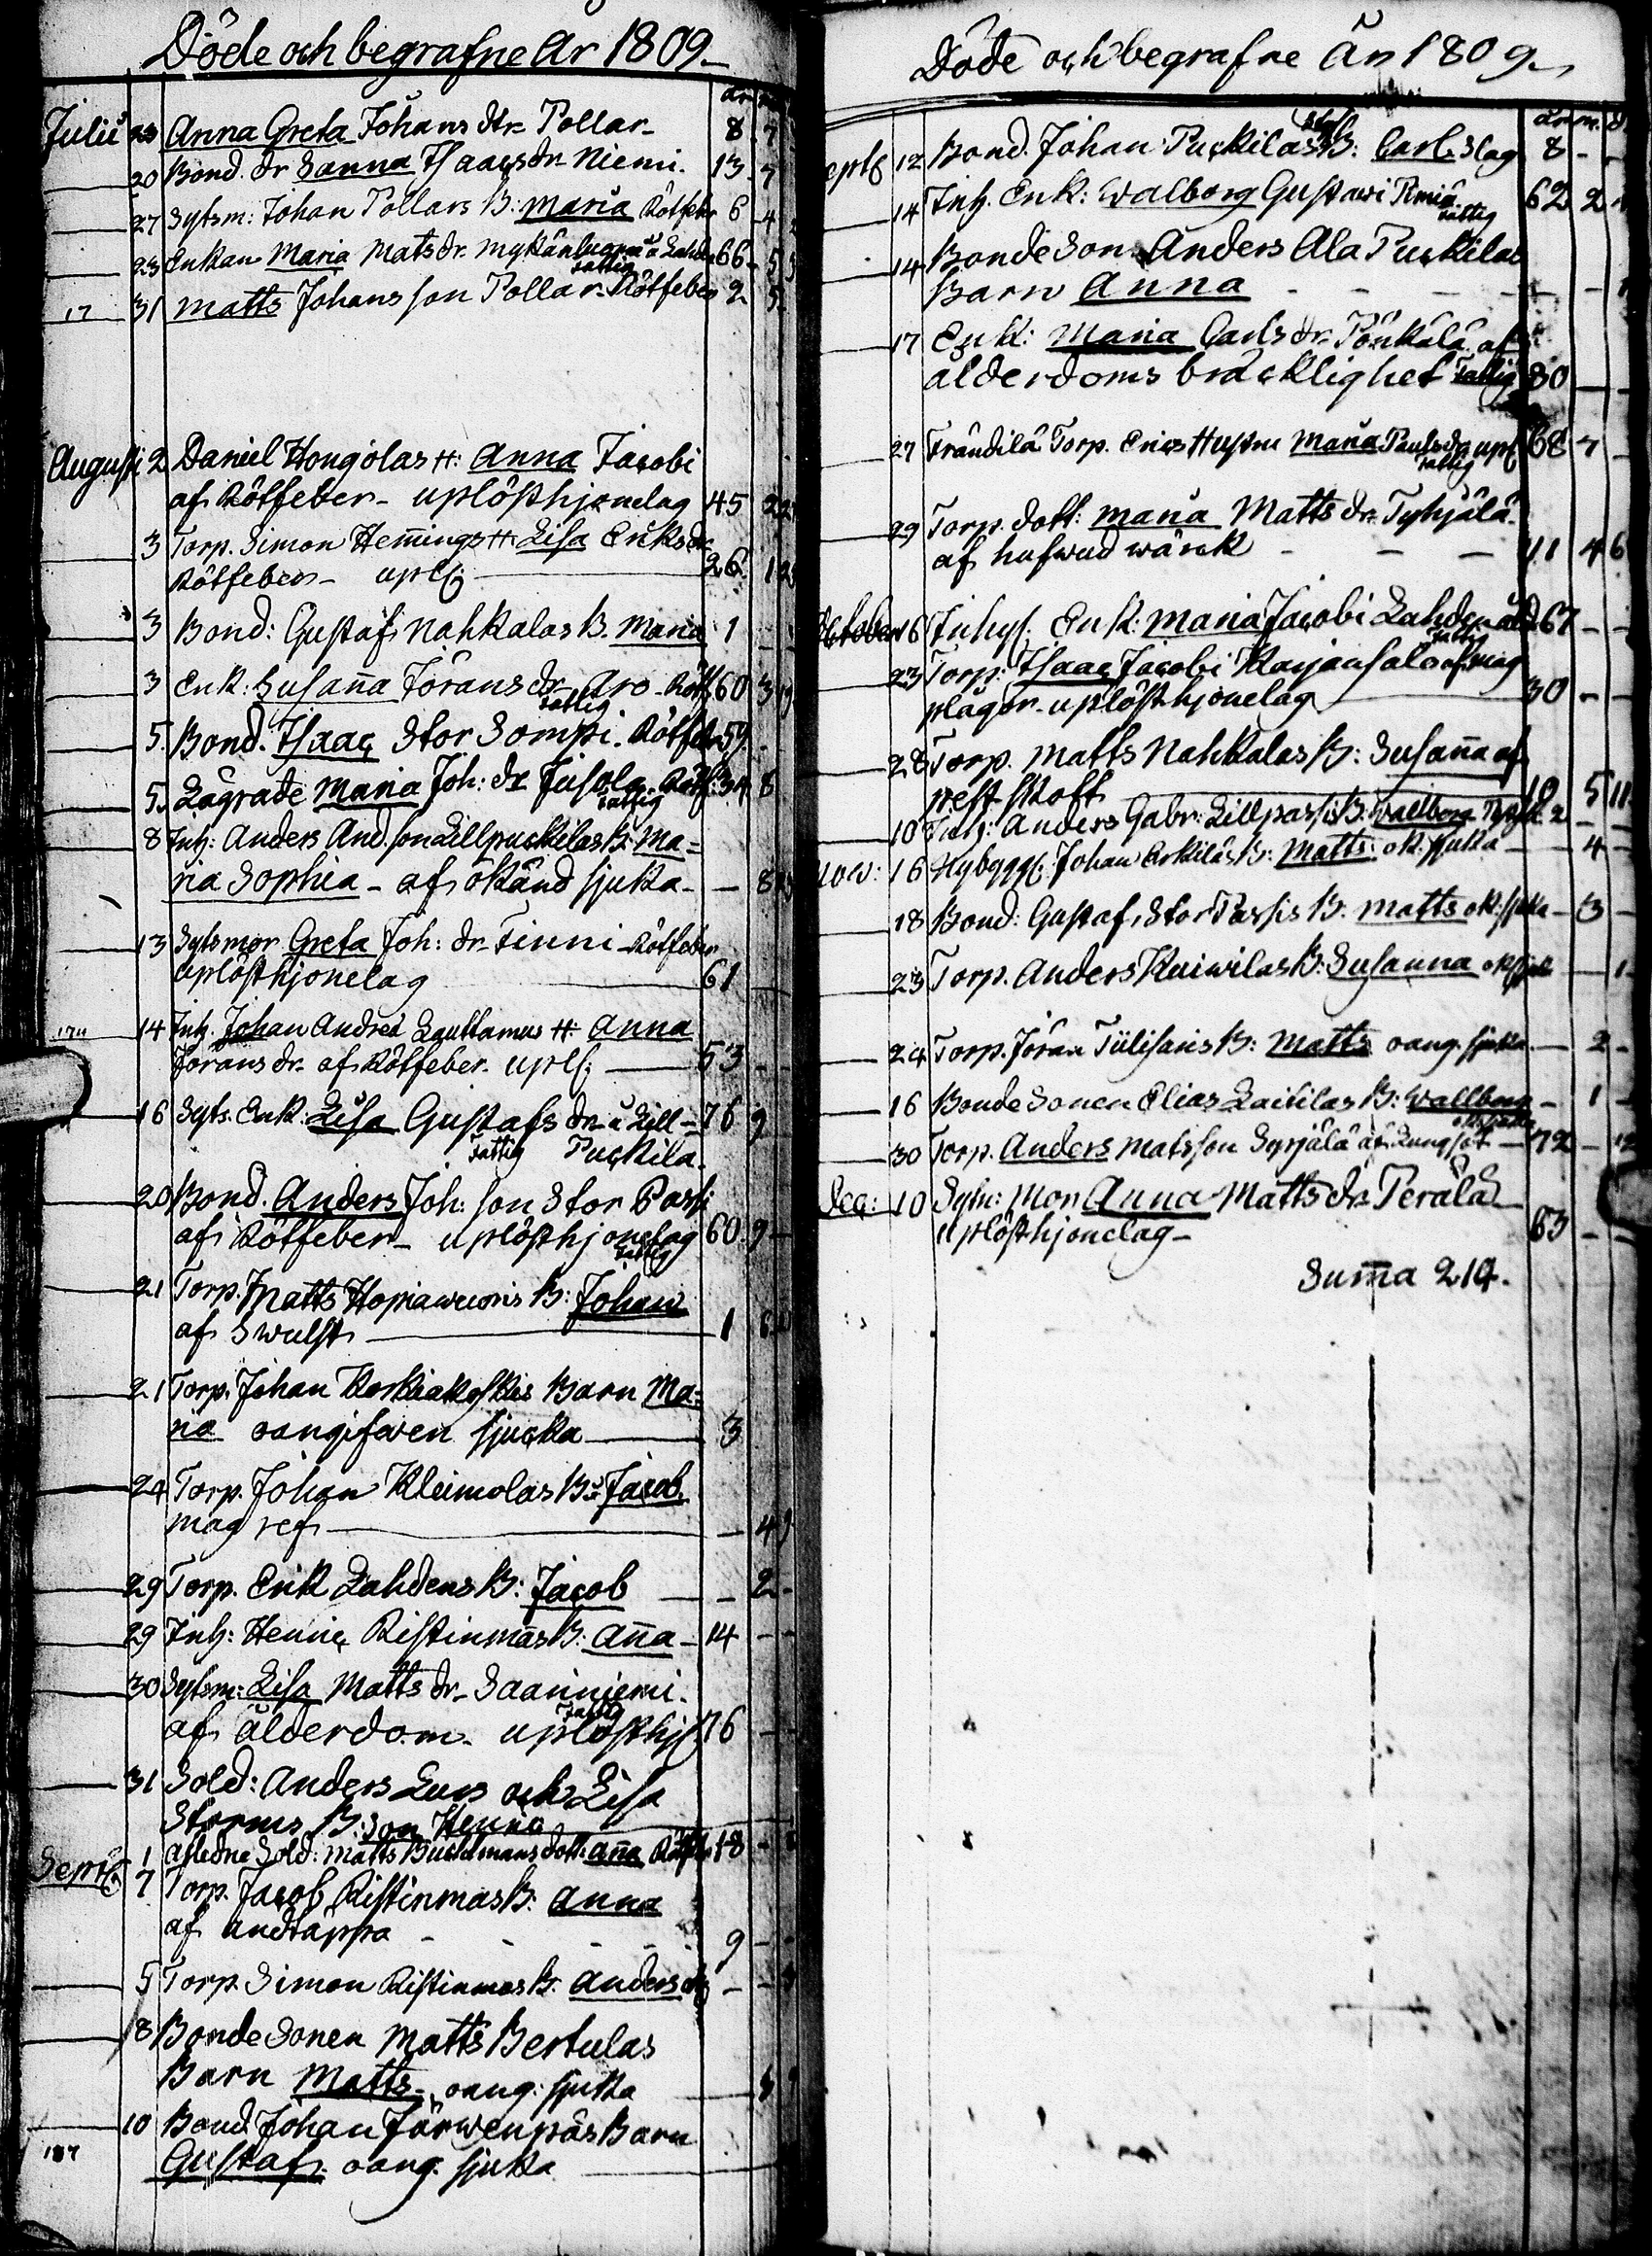 Döde och begrafne År 1809.
år
Julii 23 Anna Greta Johans dtr Pollar 8 7
20 Bond. dr Sanna Isaacs dr Niemi. 13 7
27 Sytsm: Johan Pollars B: Maria Rötfeber 6 4
23 Enkan Maria Mats dr 66 5
fattig
31 Matts Johansson Pollar Rötfeber 2 5
17
Augusti 2 Daniel Hongolas H: Anna Jacobi
af Rötfeber - uplöst hjonelag 45 2
3 Torp. Simon Hemmings H: Lisa Eriks dr
Rötfeber - upl: 26 1
3 Bond: Gustaf Nahkalas B. Maria 1
3 Enk: Susanna Jörans dr Aro Rötf 60 3
fattig
5. Bond. Isaac Stor Sompi. Rötfeber 59
5. Lägrade Maria Joh: dr Jusola. Rötf: 34 8
fattig
8 Inh: Anders And.son Lillpuckilas B: Ma=
ria Sophia - af okänd sjuka - — 8
13 Sytsmor Greta Joh: dr Finni - Rötfeber
uplöst hjonelag 61
14 Inh. Johan Andreæ Lauttamus H: Anna
Jörans dr af Rötfeber. upl: 53
16 Syts. Enk: Lisa Gustafs dr Lill= 76 9
fattig Puckila.
20 Bond. Anders Joh: son Stor Passi
af Rötfeber - uplöst hjonelag 60 9
fattig
21 Torp. Matts Hopiawuoris B: Johan
af Swulst 1 6
21 Torp. Johan Korkiakoskis Barn Ma=
ria oangifwen sjucka 3
24 Torp. Johan Kleimolas B: Jacob
mag ref — 4
29 Torp. Erik Lahdens B: Jacob — 2 -
29 Inh: Henric Ristinmas B: Anna - 14 - -
30 Sytsm: Lisa Matts dr Saariniemi.
fattig
af ålderdom. uplöst hj: 76
31 Sold: Anders Lurs och Lisa
Storms B: son Henric
Septb: 1 afledne Sold: Matts Buckmans dott: Anna Rötf: 18
7 Torp. Jacob Ristinmas B: Anna
af andtäppa 9 - -
5 Torp. Simon Ristinmas B: Anders
8 Bonde Sonen Matts Bertulas
Barn Matts oang: sjuka
10 Bond. Johan Järwenpäs Barn
187 Gustaf oang. sjuka
Döde och begrafne År 1809.
år m. d
septb 12 Bond. Johan Puckilas B: Carl. Slag 8 - -
14 Inh. Enk: Walborg Gustawi 62 2
fattig
14 Bonde Son Anders Ala Puckilas
Barn Anna
17 Enk: Maria Carls dr Pönkälä af
ålderdoms bräcklighet fattig 80
27 Frändilä Torp. Erics Hustru Maria Pauls dr upl: 68 7
fattig
29 Torp. dott: Maria Matts dr Tyhjälä
af hufwud wärck 41 4 6
October 16 Inhys. Enk: Maria Jacobi Lahden 67 - -
fattig
23 Torp: Isaac Jacobi Karjansalo af mag
plågor - uplöst hjonelag 30 - -
28 Torp. Matts Nahkalas B: Susanna af
5 11
10 Inh: Anders Gabr: Lillpassis B: Wallborg 2
Now: 16 Nybygg: Johan Erkiläs B: Matts ok. sjuka 4 -
18 Bond: Gustaf Stor Passis B: Matts ok: sjuka - 3 -
23 Torp. Anders Kuiwilas B: Susanna ok sjuk — 1
24 Torp. Jöran Tiilisaris B: Matts oang. sjuka — 2 -
16 Bonde Sonen Elias Laitilas B: Wallborg - 1 -
ok sjuka
30 Torp. Anders Matsson Syrjälä af Lungsot 72 - 12
Dec: 10 Sytn: Mor Anna Matts dr Perälä
uplöst hjonelag - 63 - -
Summa 214.